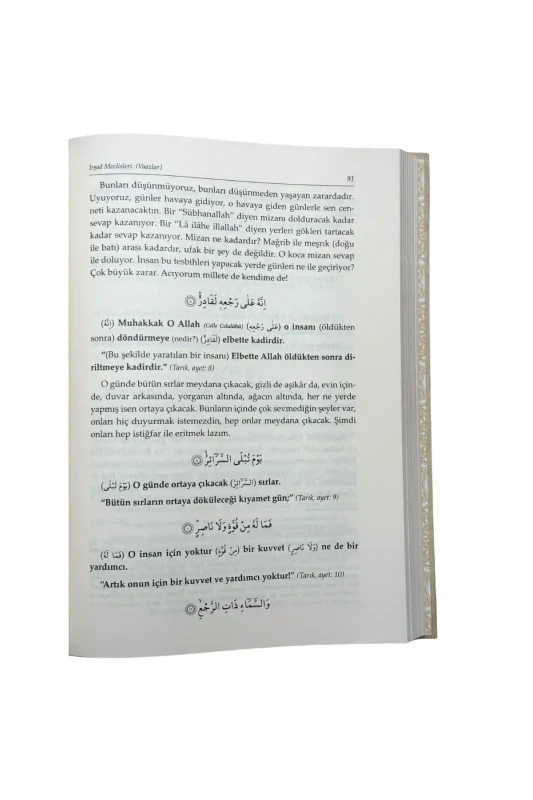 İrşad Meclisleri (Vaazlar)
91
Bunları düşünmüyoruz, bunları düşünmeden yaşayan zarardadır.
Uyuyoruz, günler havaya gidiyor, o havaya giden günlerle sen cen-
neti kazanacaktın. Bir "Sübhanallah" diyen mizanı dolduracak kadar
sevap kazanıyor. Bir "Lâ ilâhe illallah" diyen yerleri gökleri tartacak
kadar sevap kazanıyor. Mizan ne kadardır? Mağrib ile meşrık (doğu
ile batı) arası kadardır, ufak bir şey de değildir. O koca mizan sevap
ile doluyor. İnsan bu tesbihleri yapacak yerde günleri ne ile geçiriyor?
Çok büyük zarar. Acıyorum millete de kendime de!
اِنَّهُ عَلٰى رَجْعِهِ لَقَادِرٌۜ ﴿٨﴾
(اِنَّهُ) Muhakkak O Allah (Celle Celalühû) (عَلٰى رَجْعِهِ) o insanı (öldükten
sonra) döndürmeye (nedir?) (لَقَادِرٌ) elbette kadirdir.
"(Bu şekilde yaratılan bir insanı) Elbette Allah öldükten sonra di-
riltmeye kadirdir." (Tarık, ayet: 8)
O günde bütün sırlar meydana çıkacak, gizli de aşikâr da, evin için-
de, duvar arkasında, yorganın altında, ağacın altında, her ne yerde
yapmış isen ortaya çıkacak. Bunların içinde çok sevmediğin şeyler var,
onları hiç duyurmak istemezdin, hep onlar meydana çıkacak. Şimdi
onları hep istiğfar ile eritmek lazım.
يَوْمَ تُبْلَى السَّرَٓائِرُۙ ﴿٩﴾
(يَوْمَ تُبْلٰى) O günde ortaya çıkacak (السَّرَٓائِرُ) sırlar.
"Bütün sırların ortaya döküleceği kıyamet gün;" (Tarık, ayet: 9)
فَمَا لَهُ مِنْ قُوَّةٍ وَلَا نَاصِرٍۜ ﴿١٠﴾
(فَمَا لَهُ) O insan için yoktur (مِنْ قُوَّةٍ) bir kuvvet (وَلَا نَاصِرٍ) ne de bir
yardımcı.
"Artık onun için bir kuvvet ve yardımcı yoktur!" (Tarık, ayet: 10)
وَالسَّمَٓاءِ ذَاتِ الرَّجْعِۙ ﴿١١﴾